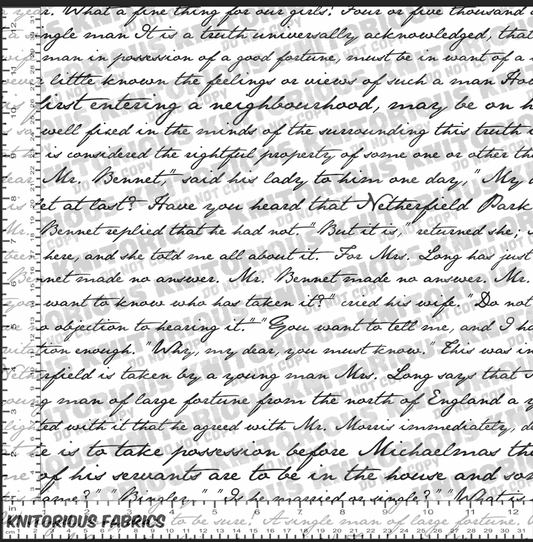 year. What a fine thing for our girls! Four or five thousand
single man It is a truth universally acknowledged, that
wife man in possession of a good fortune, must be in want of a
never little known the feelings or views of such a man
first entering a neighbourhood, may be on
so well fixed in the minds of the surrounding this truth
he is considered the rightful property of some one or other
dear Mr. Bennet," said his lady to him one day, "My
is let at last? Have you heard that Netherfield Park
Mr. Bennet replied that he had not. "But it is," returned she;
been here, and she told me all about it. For Mrs. Long has just
Bennet made no answer. Mr. Bennet made no answer. Mr.
you want to know who has taken it?" cried his wife. "Do not
no objection to hearing it." "You want to tell me, and I
invitation enough. "Why, my dear, you must know." This was
Netherfield is taken by a young man Mrs. Long says that
young man of large fortune from the north of England a
delighted with it that he agreed with Mr. Morris immediately,
he is to take possession before Michaelmas
of his servants are to be in the house and
name?" "Bingley." "Is he married or single?" "What is
to be sure! A single man of large fortune.
KNITORIOUS FABRICS